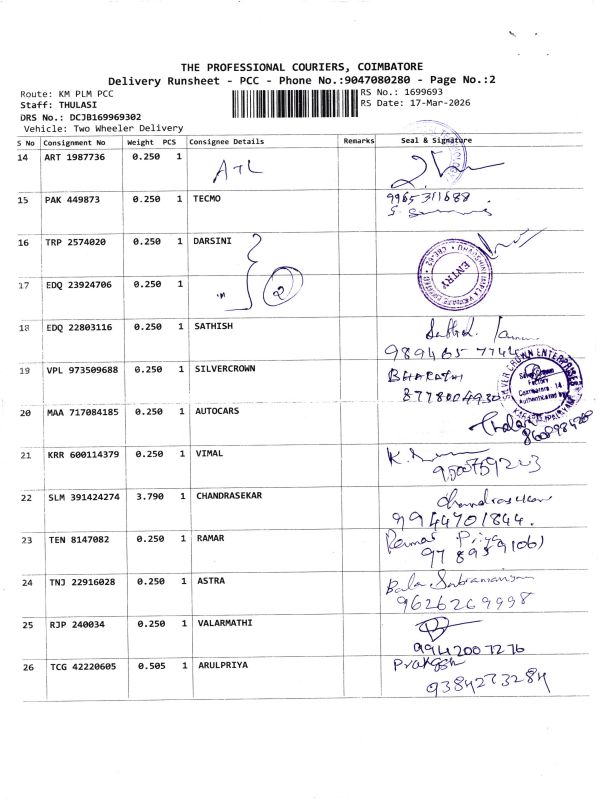 THE PROFESSIONAL COURIERS, COIMBATORE
Delivery Runsheet - PCC - Phone No.:9047080280 - Page No.:2
Route: KM PLM PCC
RS No.: 1699693
Staff: THULASI
RS Date: 17-Mar-2026
DRS No.: DCJB169969302
Vehicle: Two Wheeler Delivery
S No Consignment No Weight PCS Consignee Details Remarks Seal & Signature
14 ART 1987736 0.250 1 ATL
15 PAK 449873 0.250 1 TECMO
16 TRP 2574020 0.250 1 DARSINI
ENTRY
17 EDQ 23924706 0.250 1 2
18 EDQ 22803116 0.250 1 SATHISH
19 VPL 973509688 0.250 1 SILVERCROWN BHARATHI
8778004930
SILVER CROWN ENTERPRISES
Silver Crown
Factory
Coimbatore 14
Authenticated by
20 MAA 717084185 0.250 1 AUTOCARS
21 KRR 600114379 0.250 1 VIMAL
22 SLM 391424274 3.790 1 CHANDRASEKAR Chandrasekar
9944701844.
23 TEN 8147082 0.250 1 RAMAR Priya
24 TNJ 22916028 0.250 1 ASTRA Bala Subramaniyan
9626269998
25 RJP 240034 0.250 1 VALARMATHI
9942007276
26 TCG 42220605 0.505 1 ARULPRIYA Prakash
9384273284